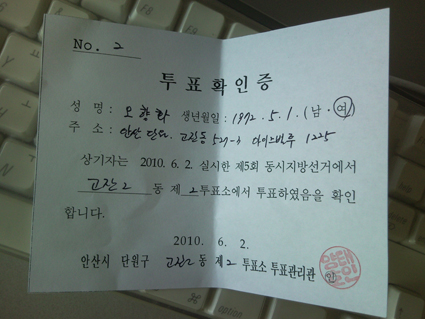 No. 2
투 표 확 인 증
성 명 : 오향학 생년월일 : 1972. 5. 1. (남 · 여)
주 소 : 안산 단원 고잔동 527-3 1225
상기자는 2010. 6. 2. 실시한 제5회 동시지방선거에서
고잔2 동 제 2 투표소에서 투표하였음을 확인
합니다.
2010. 6. 2.
안산시 단원구 고잔2 동 제 2 투표소 투표관리관 인
option